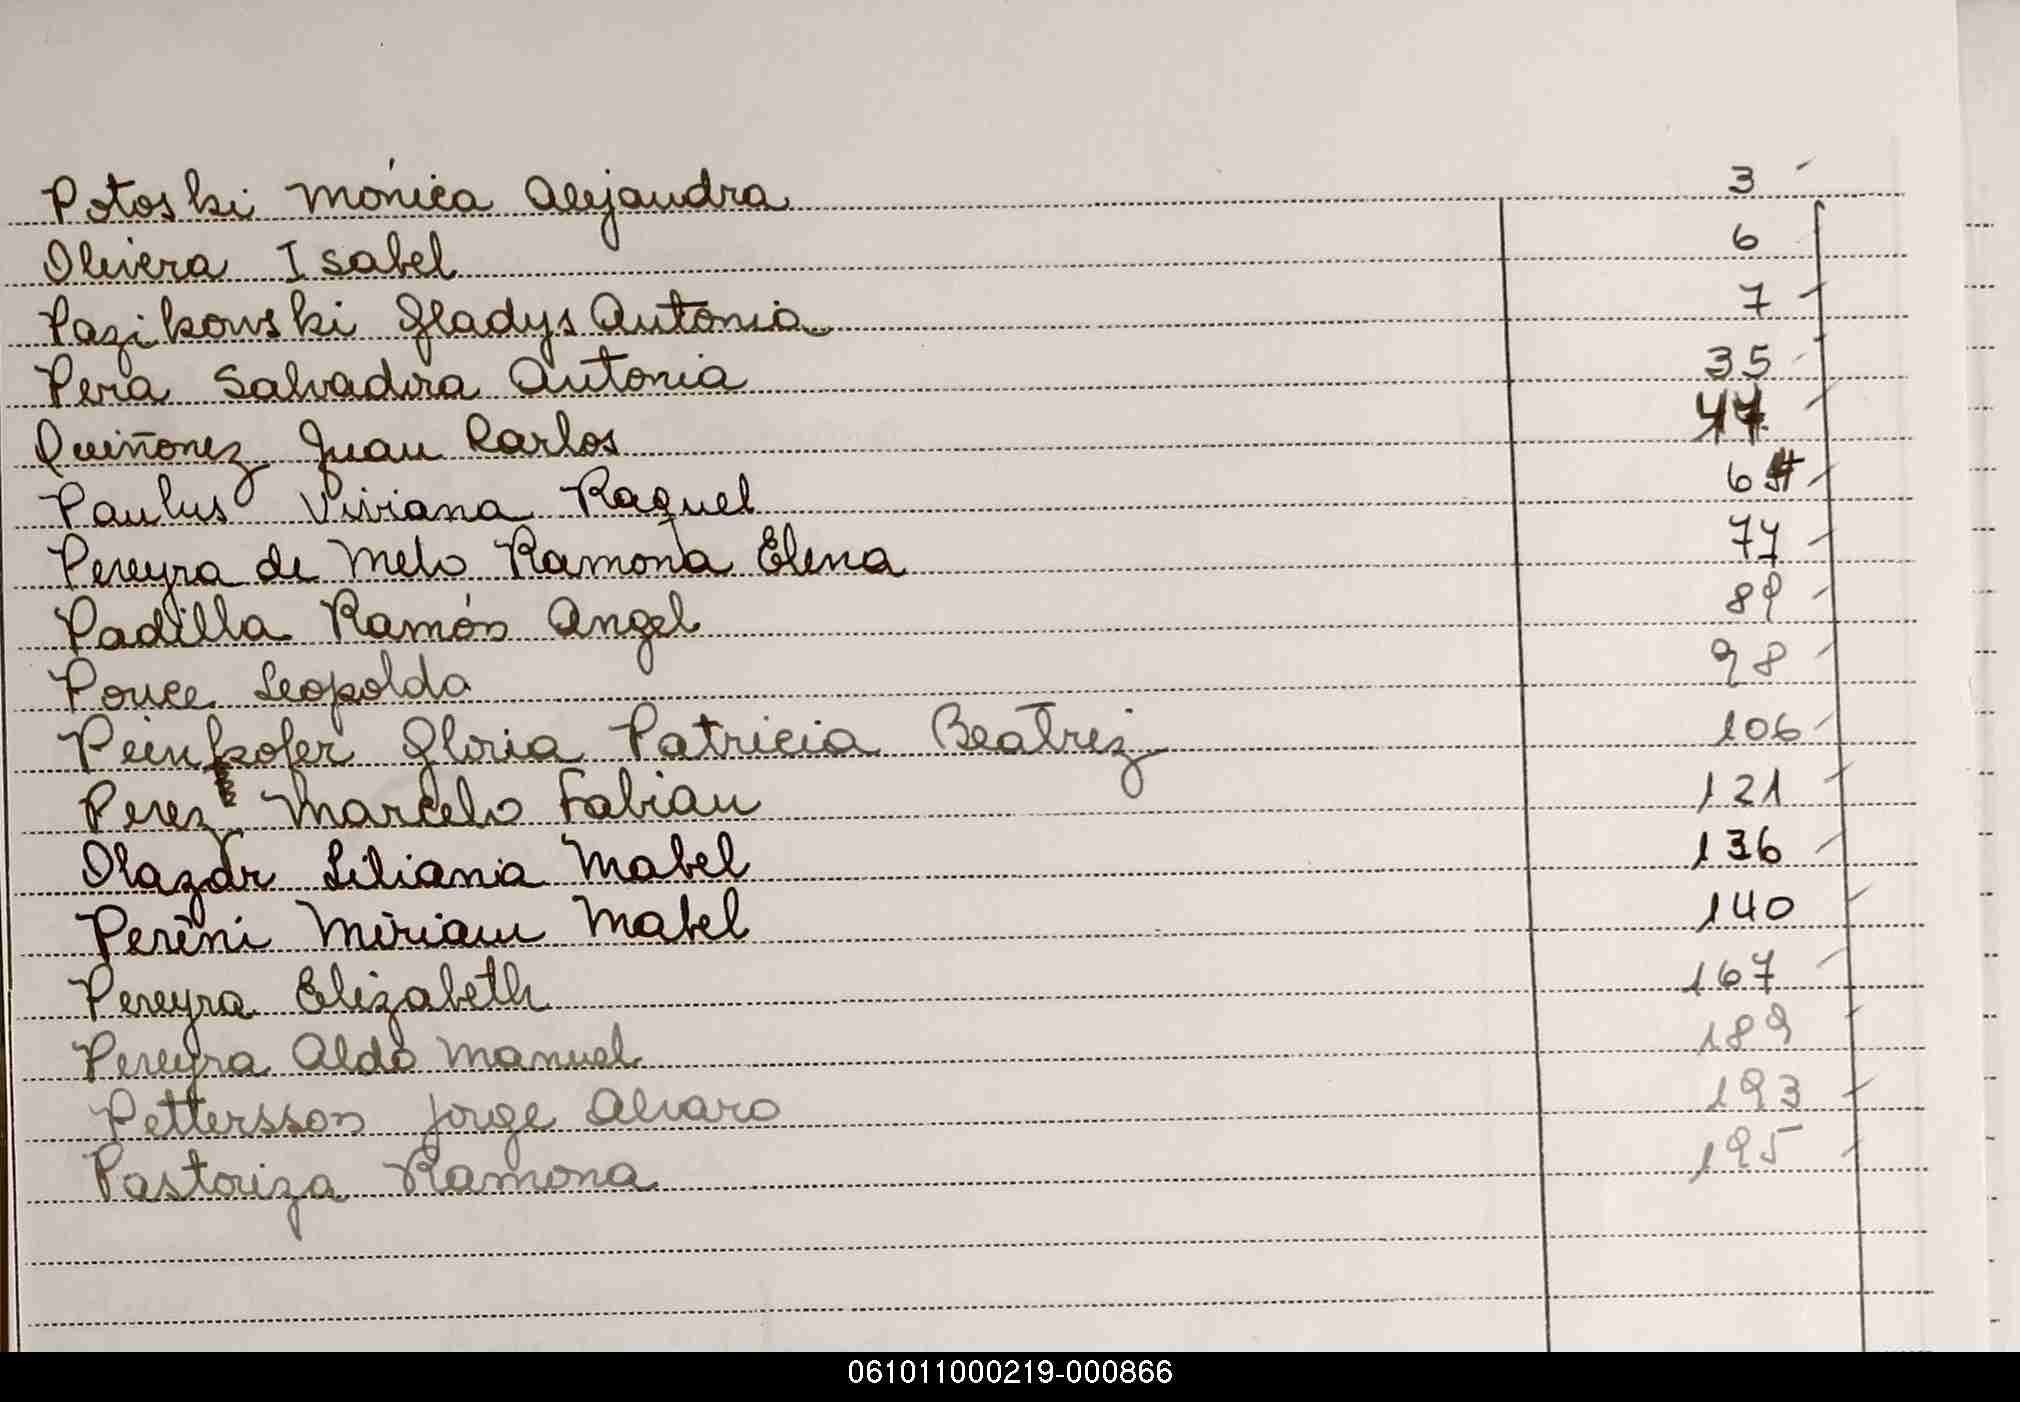 Potoski Mónica Alejandra 3
Olivera Isabel 6
Pazikowski Gladys Antonia 7
Pera Salvadora Antonia 35
Quiñonez Juan Carlos 47
Paulus Viviana Raquel 6
Pereyra de Melo Ramona Elena 77
Padilla Ramón Angel 89
Ponce Leopolda 98
Peinkofer Gloria Patricia Beatriz 106
Perez Marcelo Fabian 121
Olazar Liliana Mabel 136
Perini Miriam Mabel 140
Pereyra Elizabeth 167
Pereyra Aldo Manuel 189
Pettersson Jorge Alvaro 193
Pastoriza Ramona 195
061011000219-000866